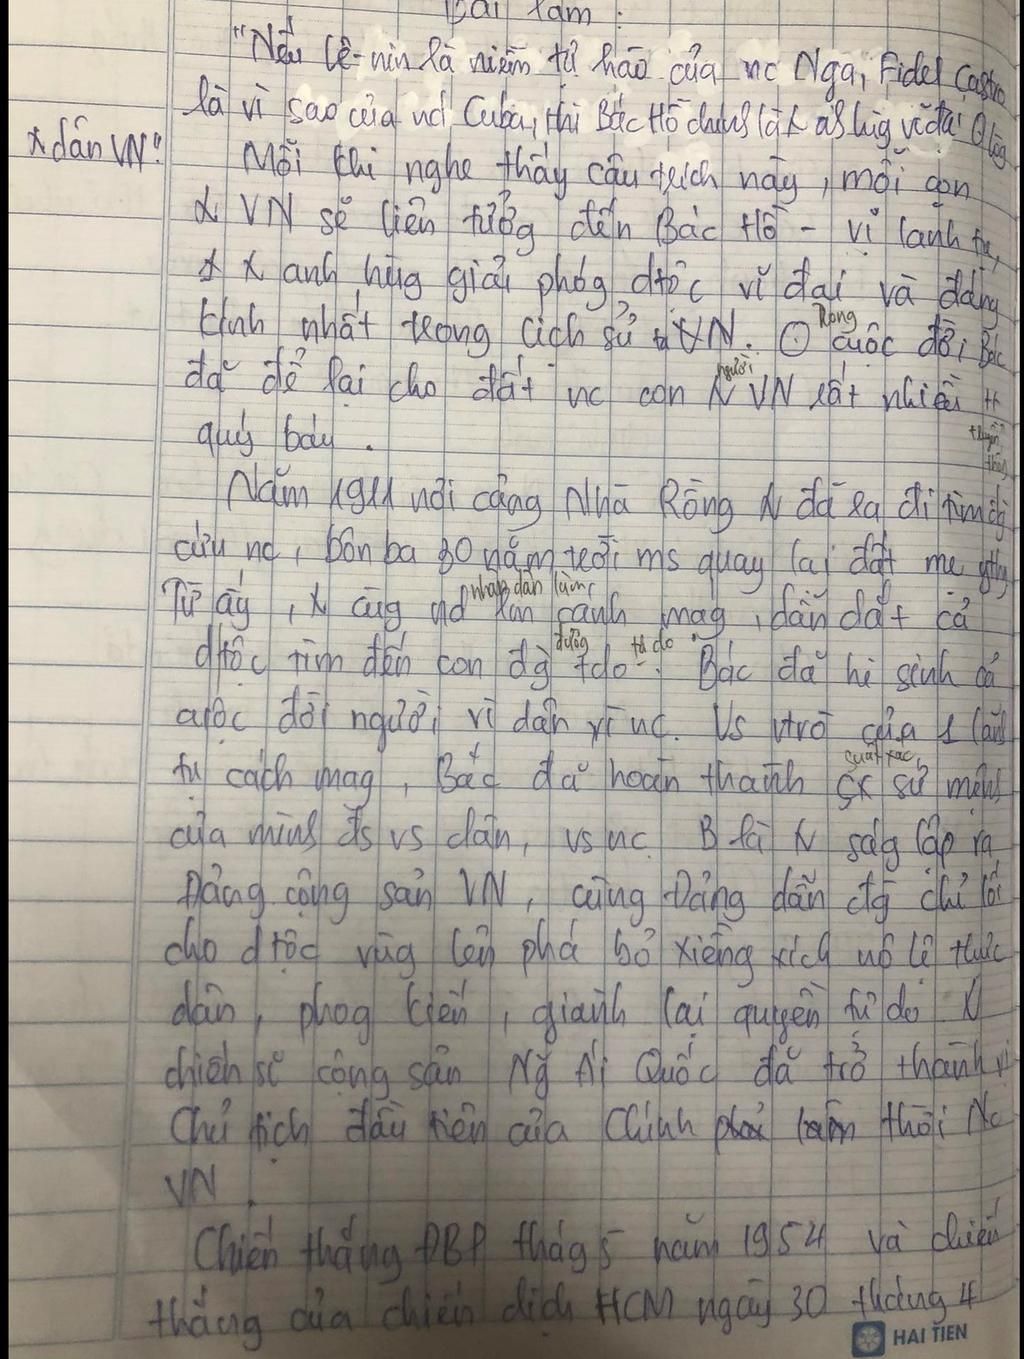 Bài làm:
"Nếu Lê-nin là niềm tự hào của nc Nga, Fidel Castro
là vì sao của nc Cuba, thì Bác Hồ chính là vĩ đại
dân VN"
Mỗi khi nghe thấy câu trích này, mỗi con
VN sẽ liên tưởng đến Bác Hồ - vị lãnh tụ,
anh hùg giải phóg dtộc vĩ đại và đáng
kính nhất trong lịch sử VN. cuộc đời Bác
Rong
đã để lại cho đất nc con N VN rất nhiều tt
người
quý báu.
truyền
thống
Năm 1911 nơi cảng Nhà Rồng N đã ra đi tìm đg
cứu nc, bôn ba 30 năm trời ms quay lại đất mẹ
Từ ấy, cùg vd làm cánh mạg, dẫn dắt cả
nhân dân làm
dtộc tìm đến con đg tdo. Bác đã hi sinh cả
đường tự do
cuộc đời người vì dân vì nc. Vs vtrò của 1 lãnh
tụ cách mạg, Bác đã hoàn thành sx sứ mệnh
suất xắc
của mình đs vs dân, vs nc. B là N ság lập ra
Đảng cộng sản VN, cùng Đảng dẫn đg chỉ lối
cho dtộc vùg lên phá bỏ xiềng xích nô lệ thực
dân, phog kiến, giành lại quyền tự do.
chiến sĩ cộng sản Ng Ái Quốc đã trở thành vị
Chủ tịch đầu tiên của Chính phủ lâm thời Nc
VN.
Chiến thắng ĐBP thág 5 năm 1954 và chiến
thắng của chiến dịch HCM ngày 30 tháng 4
HAI TIEN